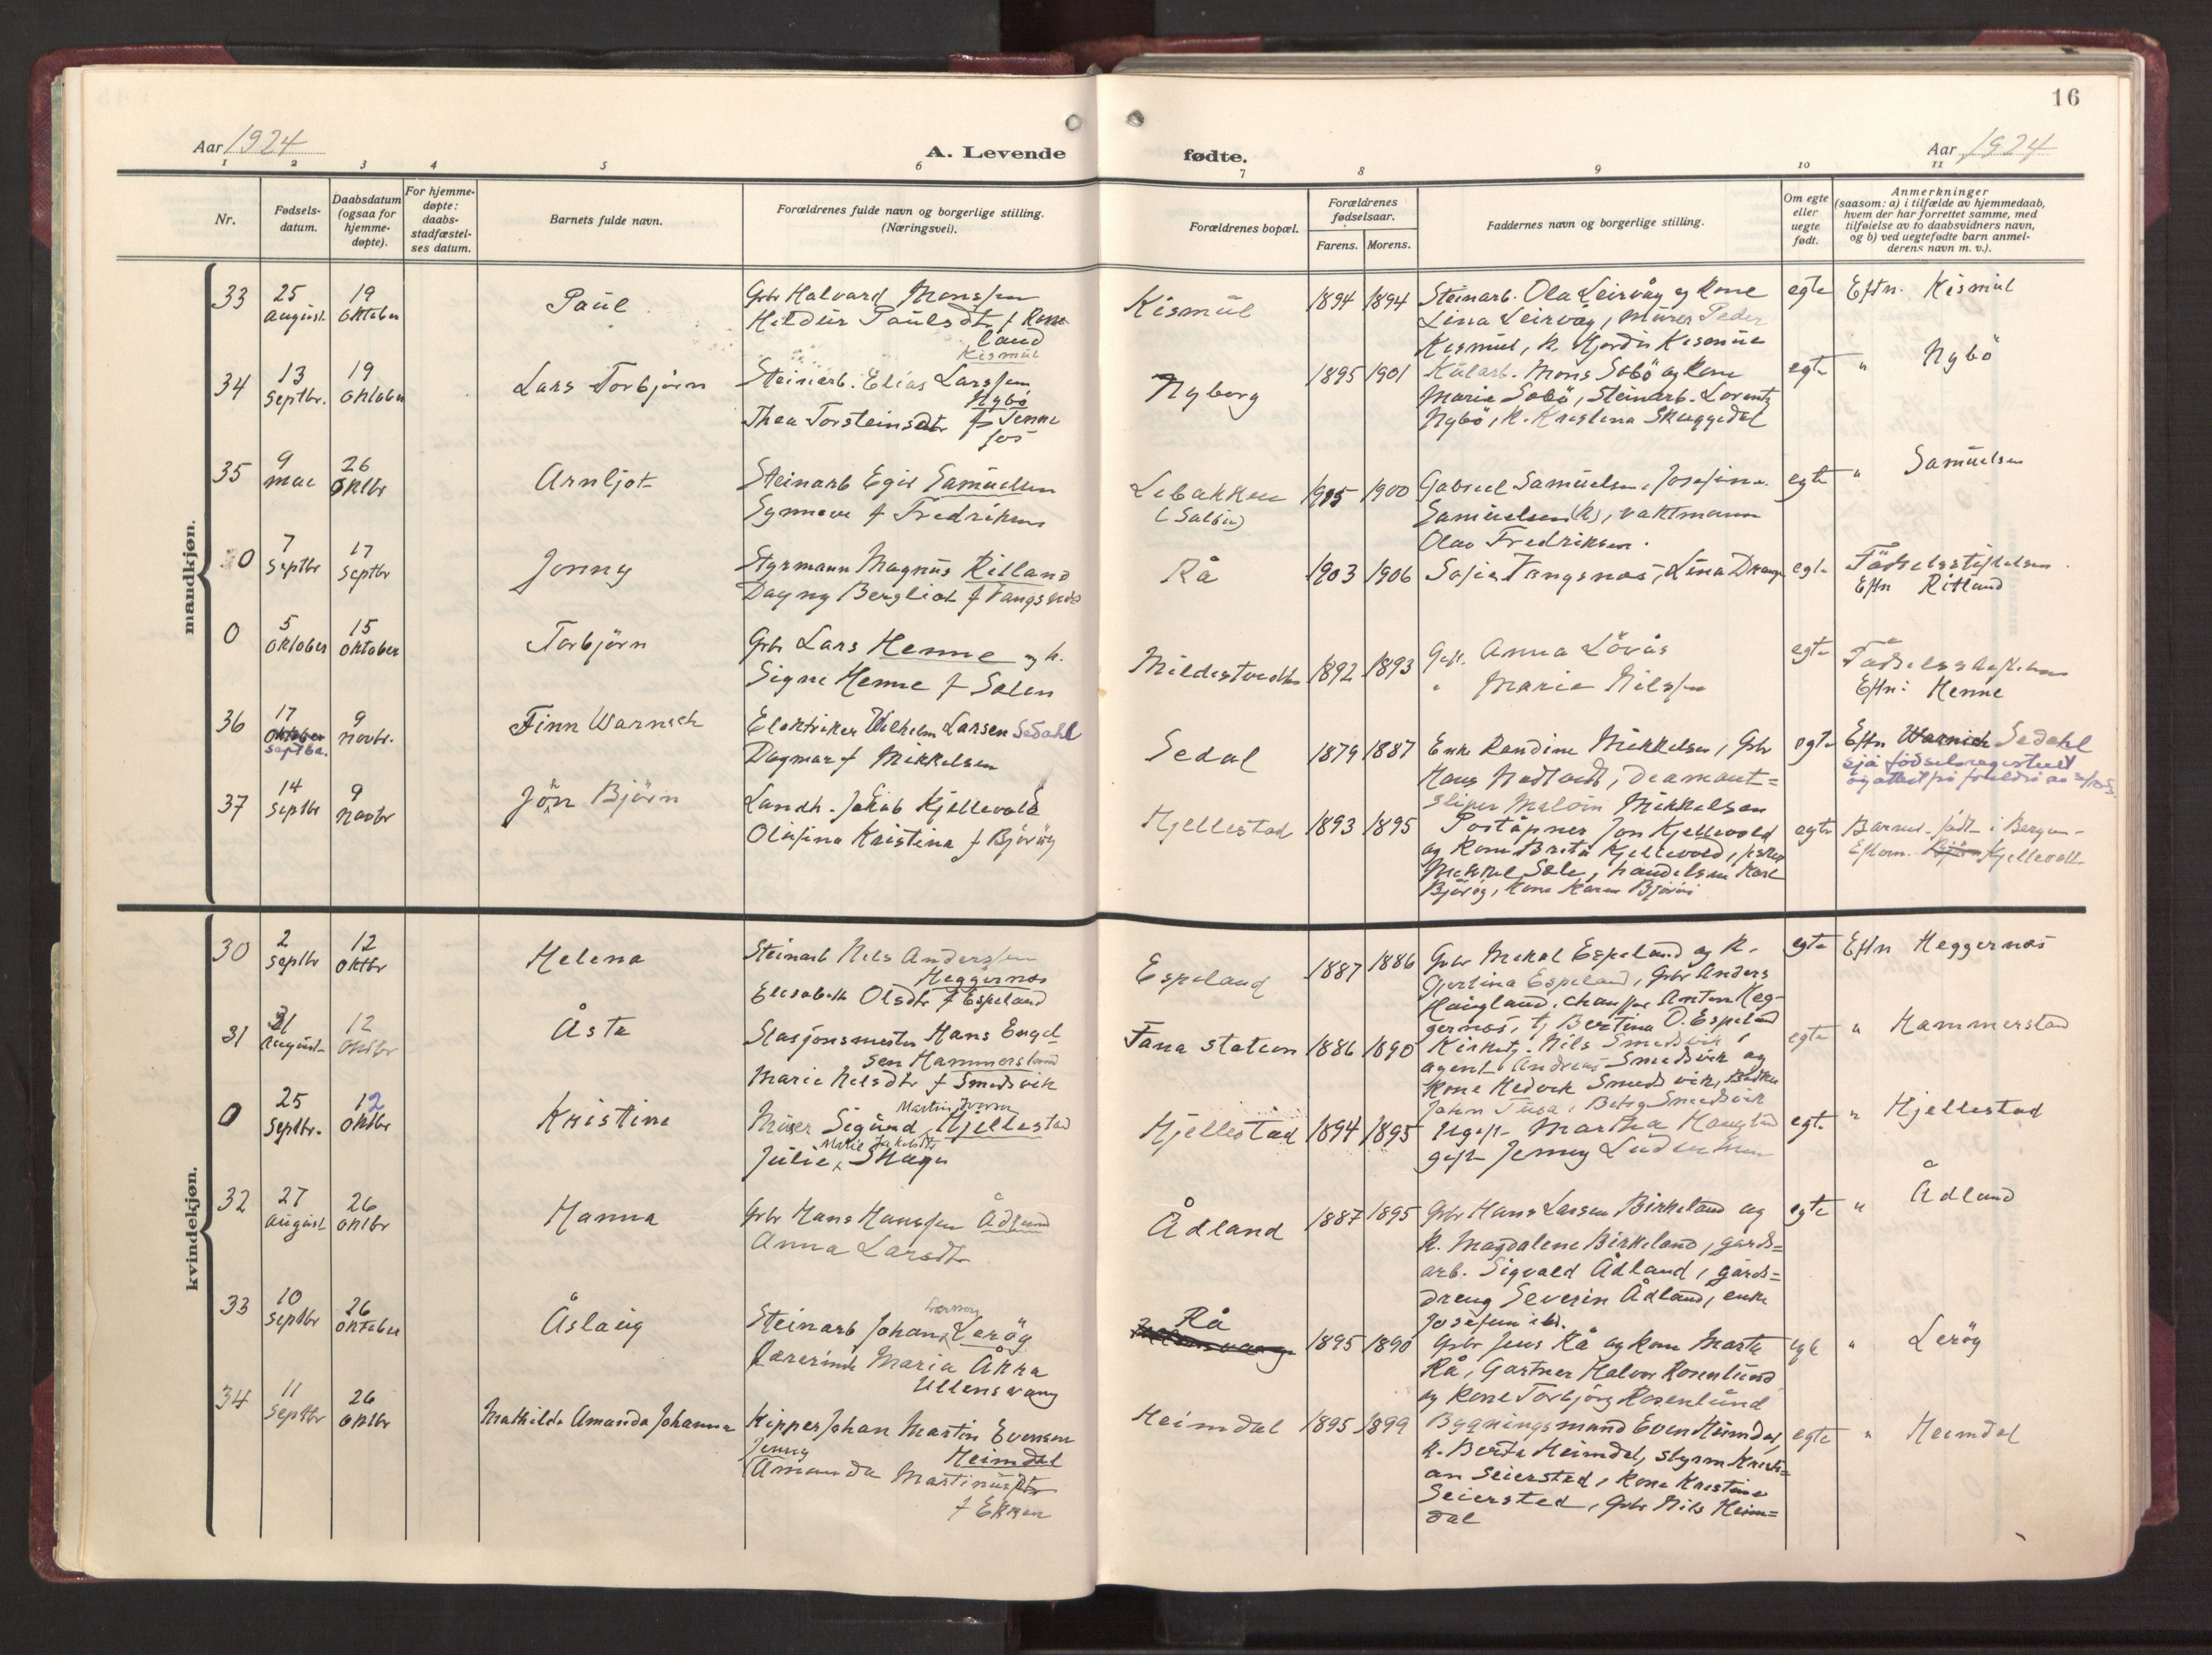 16
Aar 1924
A. Levende fødte.
Aar 1924
1 2 3 4 5 6 7 8 9 10 11
Nr.
Fødsels-
datum.
Daabsdatum
(ogsaa for
hjemme-
døpte).
For hjemme-
døpte:
daabs-
stadfæstel-
ses datum.
Barnets fulde navn.
Forældrenes fulde navn og borgerlige stilling.
(Næringsvei).
Forældrenes bopæl.
Forældrenes
fødselsaar.
Farens. Morens.
Faddernes navn og borgerlige stilling.
Om egte
eller
uegte
født.
Anmerkninger
(saasom: a) i tilfælde av hjemmedaab,
hvem der har forrettet samme, med
tilføielse av to daabsvidners navn,
og b) ved uegtefødte barn anmel-
derens navn m. v.).
mandkjøn.
33
25
August
19
Oktober
Paul
Gbr Halvard Monssen
Hildur Paulsdtr f Rønne
land
Kismul
Kismul
1894 1894
Steinarb. Ola Leirvåg og kone
Lina Leirvåg, murer Peder
Kismul, k. Hjørdis Kismul
egte
Eftn. Kismul
34
13
Septbr.
19
Oktober
Lars Torbjørn
Steinarb. Elias Larssen
Nybö
Thea Torsteinsdtr f Tenne
fos
Nyborg
1895 1901
Kularb. Mons Sobö og kone
Marie Sobö, Steinarb. Lorentz
Nybö, k. Kristina Skuggedal
egte
" Nybö
35
9
mai
26
Oktbr
Arnljot
Steinarb Egil Samuelsen
Synnöve f Fredriksen
Lebakken
1895 1900
Gabriel Samuelsen, Josefine
Samuelsen (k), vaktmann
Olav Fredriksen.
egte
" Samuelsen
0
7
Septbr
17
Septbr
Jonny
Styrmann Magnus Ritland
Dagny Bergliot f Vangsnes
Rå
1903 1906
Sofie Vangsnes, Lina Drange
egte
Födselsstiftelsen.
Eftn Ritland
0
5
Oktober
15
Oktober
Torbjörn
Gbr Lars Henne og k.
Signe Henne f Solen
Mildestvedt
1892 1893
Gift. Anna Lövås
" Marie Nilssen
egte
Födselsstiftelsen
Eftn: Henne
36
17
Oktober
Septbr.
9
Novbr.
Finn Warnich
Elektriker Wilhelm Larsen Sedahl
Dagmar f Mikkelsen
Sedal
1879 1887
Enke Randine Mikkelsen, Gbr
Hans Nedtveit, Diamant=
sliper Malvin Mikkelsen
egte
Eftn Warnich Sedahl
sjå födselsregisteret
37
14
Septbr
9
Novbr
Jon Björn
Landh. Jakob Kjellevold
Olufina Kristina f Björöy
Hjellestad
1893 1895
Poståpner Jon Kjellevold
og kone Brita Kjellevold, fisker
Mikkel Sele, handelsm Karl
Björöy, kone Karen Björöy
egte
Barnet födt i Bergen -
Eftern. Björn Kjellevold
kvindekjøn.
30
2
Septbr
12
Oktbr
Helena
Steinarb Nils Anderssen
Heggernes
Elisabeth Olsdtr f Espeland
Espeland
1887 1886
Gbr Mikal Espeland og k.
Gjertina Espeland, Gbr Anders
Haugland, chauffør Anton Heg-
gernes, tj Bertina O. Espeland
egte
Eftn Heggernes
31
31
August
12
Oktbr
Åsta
Stasjonsmester Hans Engel
sen Hammersland
Marie Nilsdtr f Smedsvik
Fana station
1886 1890
Kirketj. Nils Smedsvik,
agent Andreas Smedsvik og
kone Hedvik Smedsvik,
John Tusa, Betzy Smedsvik
egte
" Hammersland
0
25
Septbr.
12
Oktbr
Kristine
Martin Iversen
Murer Sigurd Hjellestad
Marie Jakobsdtr
Julie Skage
Hjellestad
1894 1895
Ugift Martha Haugland
gift Jenny
egte
" Hjellestad
32
27
August
26
Oktbr
Hanna
Gbr Hans Hanssen Ådland
Anna Larsdtr
Ådland
1887 1895
Gbr Hans Larsen Birkeland og
k. Magdalene Birkeland, gårds=
arb. Sigvald Ådland, gårds=
dreng Severin Ådland, enke
Josefine ibd.
egte
" Ådland
33
10
Septbr
26
Oktober
Åslaug
Steinarb Johan Leröy
Lærerinde Maria Åkra
Ullensvang
Rå
1895 1890
Gbr Jens Rå og kone Marta
Rå, Gartner Halvor Rosenlund
og kone Torbjörg Rosenlund
egte
" Leröy
34
11
Septbr
26
Oktbr
Mathilde Amanda Johanna
Skipper Johan Martin Evensen
Jenny Heimdal
Amanda Martinusdtr
f Ekren
Heimdal
1895 1899
Bygningsmand Even Heimdal,
k. Berta Heimdal, styrm Kristi=
an Seiersted, kone Kristine
Seiersted, Gbr Nils Heim=
dal
egte
" Heimdal